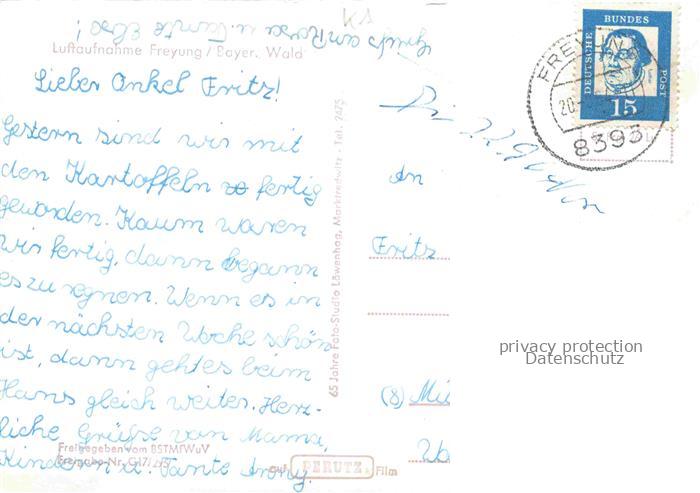 Gruß an Rosa u. Tante Elsa!
Luftaufnahme Freyung / Bayer. Wald
Lieber Onkel Fritz!
Gestern sind wir mit
den Kartoffeln fertig
geworden. Kaum waren
wir fertig, dann begann
es zu regnen. Wenn es in
der nächsten Woche schön
ist, dann gehtes beim
Hans gleich weiter. Herz-
liche Grüße von Mama,
Kindern u. Tante
Freigegeben vom BSTMfWuV
Freigabe-Nr. G17/
auf PERUTZ Film
65 Jahre Foto-Studio Löwenhag, Marktredwitz · Tel. 2475
DEUTSCHE BUNDES POST
15
8393
20
An
Fritz
(8) Mü
privacy protection
Datenschutz